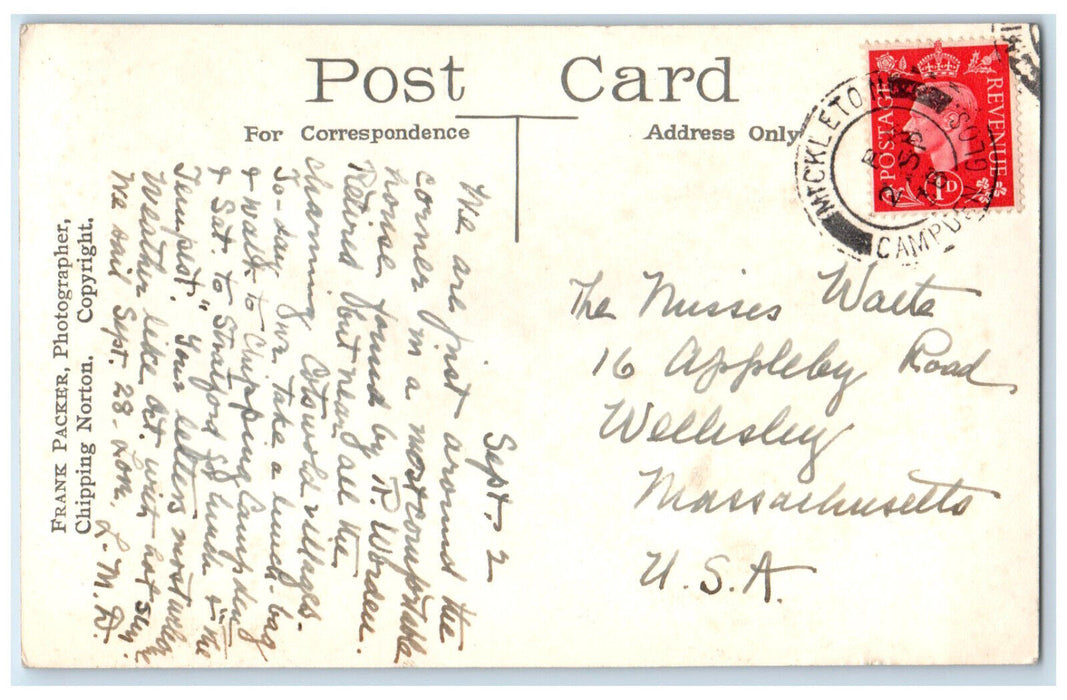 Post Card
For Correspondence
Address Only
POSTAGE
REVENUE
1D
MICKLETON
CAMPDEN GLOS.
2 SP
FRANK PACKER, Photographer,
Chipping Norton. Copyright.
Sept. 2
We are just around the
corner in a most comfortable
house found by R. Worden.
Retired but near all the
charming Cotswold villages.
To-day, we take a lunch-bag
& walk to Chipping Campden
& Sat. to Stratford for lunch & "The
Tempest." Your letters most welcome
Weather like Oct. with hot sun.
We sail Sept. 28 - Love, L. M. R.
The Misses Waite
16 Appleby Road
Wellesley
Massachusetts
U.S.A.